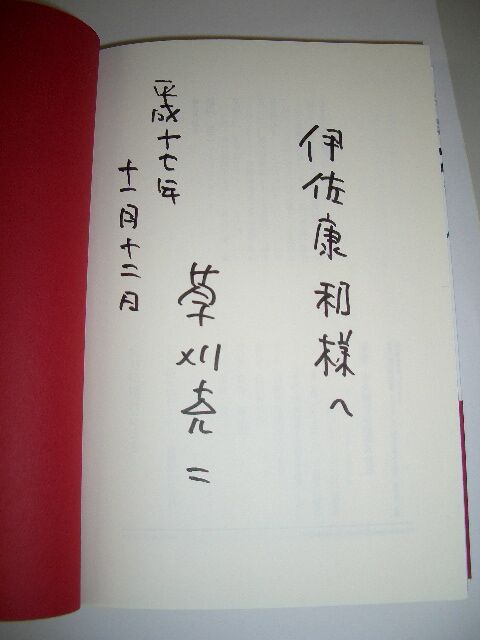 伊佐康利様へ
草刈克二
平成十七年
十一月十二日